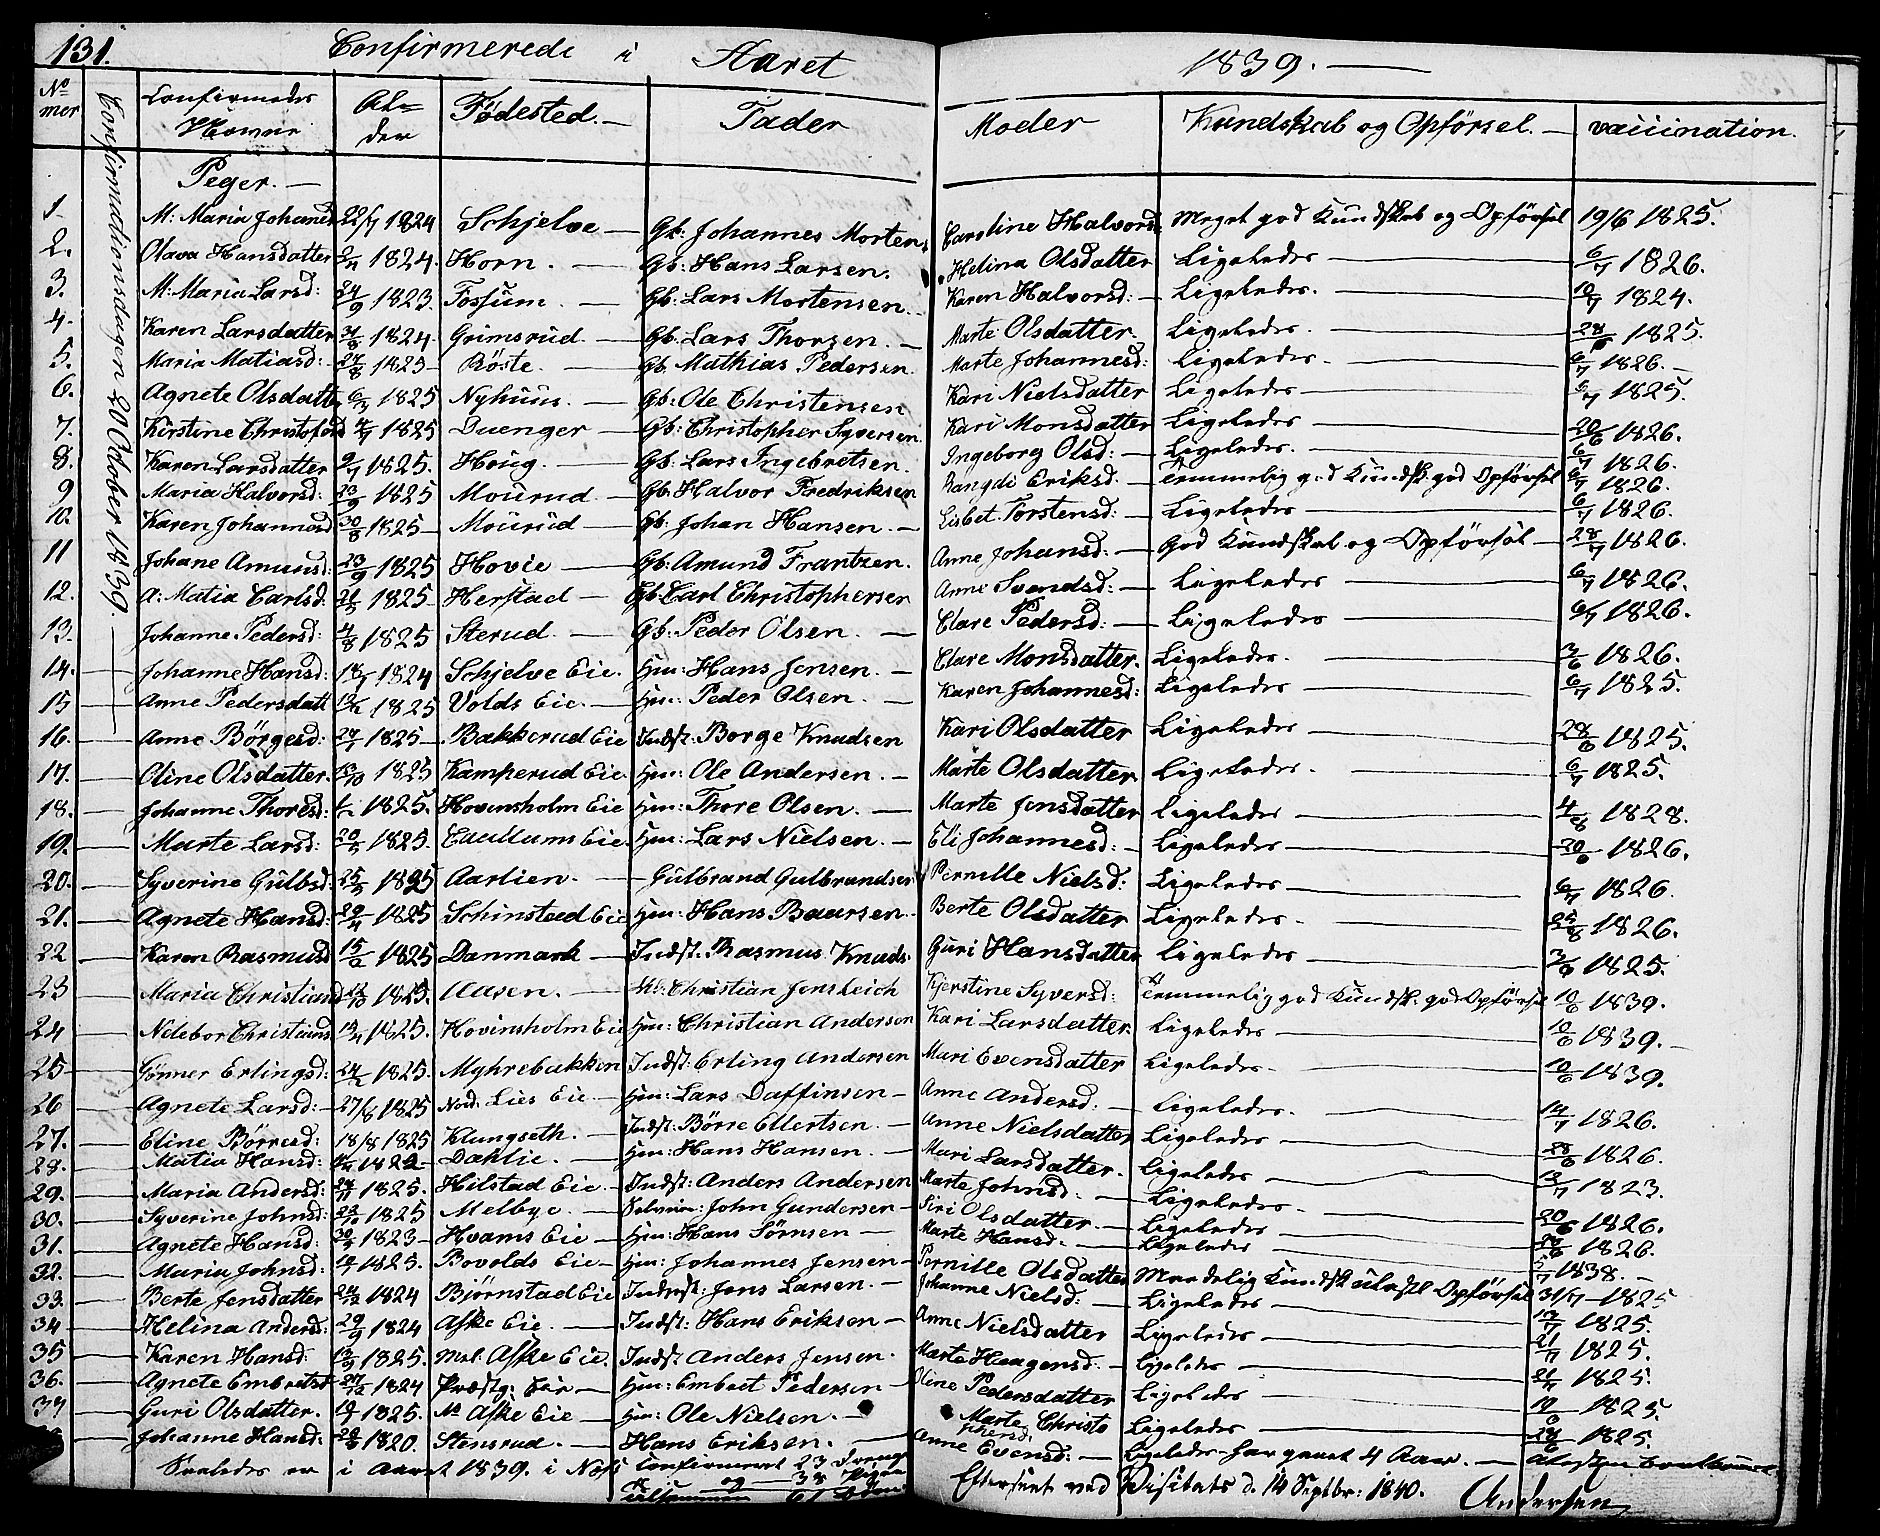 131.
Confirmerede i Aaret 1839.
No mer Confirmedes Navne Alder Fødested. Fader Moder Kundskab og Opførsel. vaccination.
Confirmationsdagen 20 October 1839.
Peger.
1. M: Maria Johanes 22/7 1824 Schjelve Gb: Johannes Morten Caroline Halvorsd Meget god Kundskab og Opførsel 19/6 1825.
2. Olava Hansdatter 1824. Horn. Gb: Hans Larsen. Helina Olsdatter Ligeledes 6/7 1826.
3. M: Maria Larsd: 24/9 1823. Fossum. Gb: Lars Mortensen. Karen Halvorsd: Ligeledes. 10/7 1824.
4. Karen Larsdatter 1824. Grimsrud Gb. Lars Thorsen. Marte Olsdatter. Ligeledes. 1825.
5. Maria Matiasd: 27/8 1825 Røste. Gb. Mathias Pedersen. Marte Johannesd: Ligeledes. 6/7 1826.
6. Agnete Olsdatter 1825 Nyhuus. Gb: Ole Christensen Kari Nielsdatter Ligeledes 6/7 1825.
7. Kirstine Christofersd 1825 Duenger Gb: Christopher Syversen. Kari Monsdatter Ligeledes 20/6 1826.
8. Karen Larsdatter 9/7 1825. Houg. Gb: Lars Ingebretsen. Ingeborg Olsd: Ligeledes. 6/7 1826.
9 Maria Halvorsd: 23/9 1825 Mourud Gb: Halvor Fredriksen Rangdi Eriksd. Temmelig god Kundsk. god Opførsel 6/7 1826.
10. Karen Johannesd 30/8 1825 Mourud Gb: Johan Hansen. Lisbet Torstensd: Ligeledes 6/7 1826.
11 Johane Amunsd: 23/9 1825 Hovie Gb: Amund Frantzen. Anne Johansd: God Kundskab og Opførsel 28/7 1826.
12. A: Matia Carlsd: 1825 Herstad Gb: Carl Christophersen Anne Svendsd: Ligeledes 6/7 1826.
13. Johanne Pedersd: 4/8 1825 Sterud. Gb: Peder Olsen. Clare Pedersd: Ligeledes 6/7 1826.
14. Johanne Hansd: 1824 Schjelve Eie. Hm: Hans Jensen. Clare Monsdatter. Ligeledes. 3/6 1826.
15 Anne Pedersdatt 1825 Volds Eie. Hm: Peder Olsen. Karen Johannesd: Ligeledes 6/7 1825.
16. Anne Børgesd: 1825 Bakkerud Eie Indst: Borge Knudsen Kari Olsdatter Ligeledes 28/6 1825.
17. Oline Olsdatter. 13/10 1825 Kamperud Eie. Hm: Ole Andersen. Marte Olsdatter Ligeledes. 6/7 1825.
18. Johanne Thoresd: 1825. Hovinsholm Eie Hm: Thore Olsen. Marte Jensdatter Ligeledes 4/8 1828.
19. Marte Larsd: 1825. Eie. Hm: Lars Nielsen. Eli Johannesd: Ligeledes 20/6 1826.
20. Syverine Gulbsd: 25/5 1825 Aarlien. Gulbrand Gulbrandsen Pernille Nielsd: Ligeledes 6/7 1826.
21. Agnete Hansd: 1825 Schinstad Eie Hm: Hans Baarsen. Berte Olsdatter Ligeledes. 25/8 1826.
22 Karen Rasmusd 15/2 1825 Danmark Indst. Rasmus Knuds. Guri Hansdatter Ligeledes 1825.
23 Maria Christiansd 1825. Aasen. Christian Jensleich Kjerstine Syversd: Temmelig god Kundsk. god Opførsel 10/6 1839.
24 Nilebor Christiansd 1825. Hovinsholm Eie Hm: Christian Andersen Kari Larsdatter Ligeledes 10/6 1839.
25 Gønner Erlingsd: 1825. Myhrebakken Indst: Erling Andersen Mari Evensdatter Ligeledes. 10/6 1839.
26 Agnete Larsd: 27/6 1825 Nord. Lies Eie Hm: Lars Daffinsen Anne Andersd: Ligeledes. 14/7 1826.
27. Eline Børresd: 18/8 1825 Klungseth. Indst: Børre Ellertsen. Anne Nielsdatter Ligeledes 28/6 1826.
28. Matia Hansd: 1822 Dahlie. Hm: Hans Hansen. Mari Larsdatter. Ligeledes 1823.
29. Maria Andersd: 1825. Hilstad Eie. Indst: Anders Andersen Marte Johnsd: Ligeledes. 20/6 1826.
30. Syverine Johnsd: 1825 Melbye. Selveier: John Gundersen Siri Olsdatter. Ligeledes 1826.
31. Agnete Hansd: 1823 Hvams Eie Hm: Hans Sørnsen Marte Hansd. Ligeledes 1838.
32. Maria Johnsd: 1825. Bovolds Eie Hm: Johannes Jensen Pernille Olsdatter Maadelig Kundsk Opførsel 31/7 1825
33. Berte Jensdatter 1824 Bjørnstad Eie Inderst: Jens Larsen. Johanne Nielsd: Ligeledes 1825.
34 Helina Andersd: 29/9 1824 Aske Eie. Indst: Hans Eriksen Anne Nielsdatter Ligeledes 21/7 1825.
35 Karen Hansd: 13/9 1825. Mel. Aske Eie. Indst. Anders Jensen. Marte Haagensd. Ligeledes 1825.
36. Agnete Embretsd 27/12 1824 Præstg: Eie Hm: Embret Pedersen Oline Pedersdatter Ligeledes 1825.
37 Guri Olsdatter. 1825. No Aske Eie Hm: Ole Nielsen. Marte Christophersd. Ligeledes 1825.
Johanne Hansd: 1820. Stensrud. Hans Eriksen. Anne Evensd: Ligeledes har gaaet 4 Aar.
Saaledes er i Aaret 1839. i Næs Confirmeret 23 Drenge
og 38 Piger
tilsammen 61
Efterseet ved Visitats d. 14 Septbr: 1840. Andersen